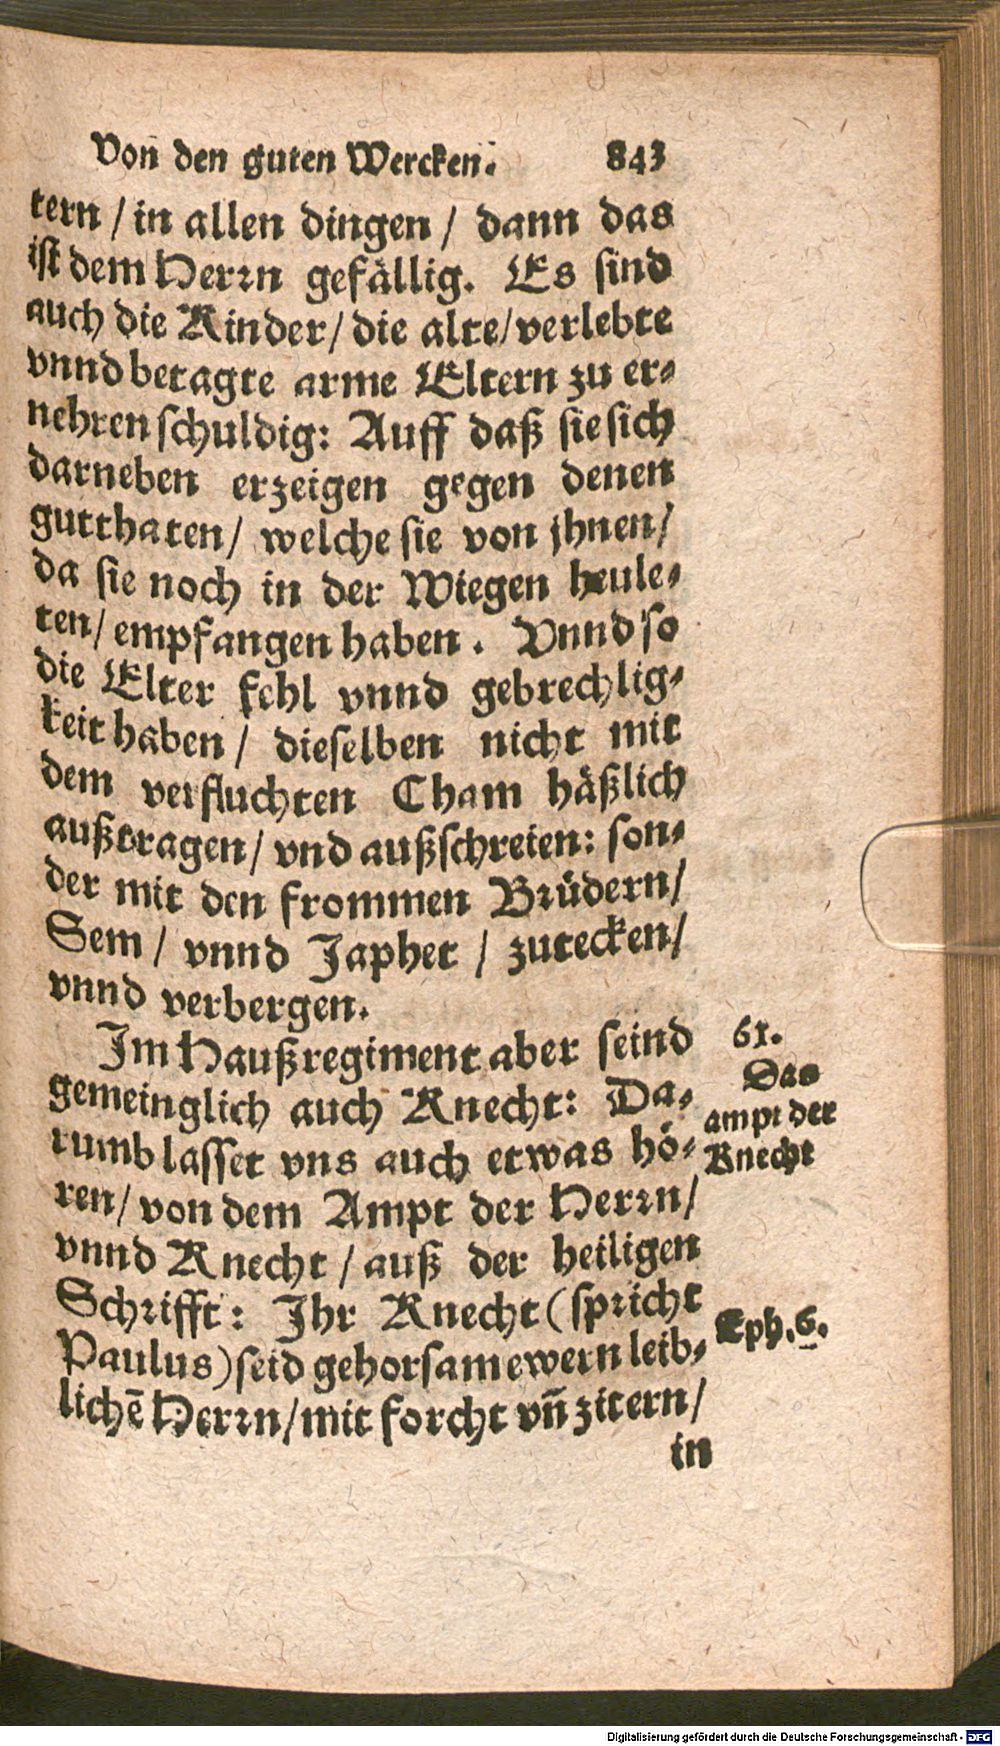 Von den guten Wercken. 843
tern / in allen dingen / dann das
ist dem Herrn gefällig. Es sind
auch die Kinder / die alte / verlebte
vnnd betagte arme Eltern zu er-
nehren schuldig: Auff daß sie sich
darneben erzeigen gegen denen
gutthaten / welche sie von jhnen /
da sie noch in der Wiegen heule-
ten / empfangen haben. Vnnd so
die Elter fehl vnnd gebrechlig-
keit haben / dieselben nicht mit
dem verfluchten Cham häßlich
außtragen / vnd außschreien: son-
der mit den frommen Brüdern /
Sem / vnnd Japhet / zutecken /
vnnd verbergen.
Im Haußregiment aber seind
gemeinglich auch Knecht: Da-
rumb lasset vns auch etwas hö-
ren / von dem Ampt der Herrn /
vnnd Knecht / auß der heiligen
Schrifft: Ihr Knecht (spricht
Paulus) seid gehorsam ewern leib-
lichẽ Herrn / mit forcht vñ zitern /
in
61.
Das
ampt der
Knecht
Eph. 6.
Digitalisierung gefördert durch die Deutsche Forschungsgemeinschaft - DFG